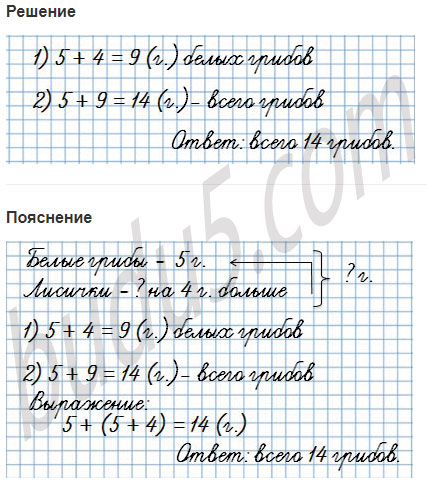 Решение
1) 5 + 4 = 9 (г.) белых грибов
2) 5 + 9 = 14 (г.) – всего грибов
Ответ: всего 14 грибов.
Пояснение
Белые грибы – 5 г.
Лисички – ? на 4 г. больше
? г.
1) 5 + 4 = 9 (г.) белых грибов
2) 5 + 9 = 14 (г.) – всего грибов
Выражение:
5 + (5 + 4) = 14 (г.)
Ответ: всего 14 грибов.
budu5.com